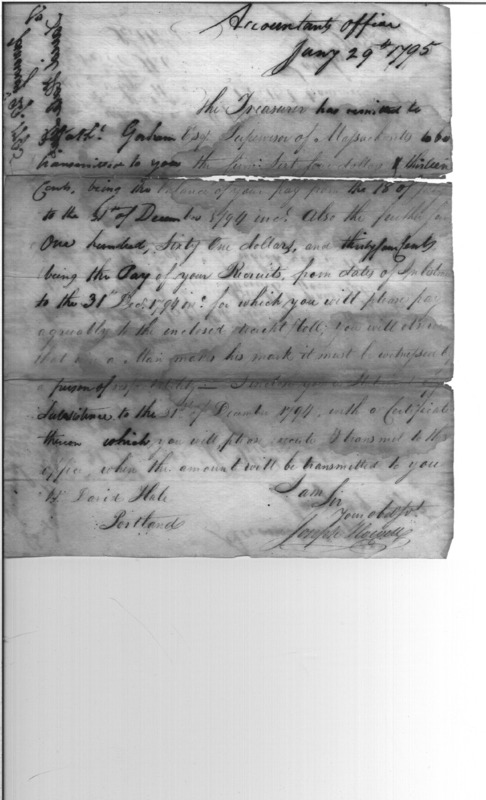 Accountants Office
Jany 29th 1795
The Treasurer has remitted to
Nathl. Gorham Esqr Supervisor of Massachusetts to be
transmitted to you the sum Sixty four dollars & thirteen
Cents, being the balance of your pay from the 18 of
to the 31st of December 1794 incl. Also the further
One hundred, Sixty One dollars, and thirty four Cents
being the Pay of your Recruits, from dates of
to the 31st Dec. 1794 inc. for which you will please pay
agreeably to the enclosed receipt Roll; you will
that where a Man makes his mark it must be witnessed
a person of respectability
Subsistence to the 31st of December 1794, with a Certificate
thereon which you will please execute & transmit to this
office, when the amount will be transmitted to you
David Hale
Portland
I am
Sir
Your obdt st
Joseph Howell